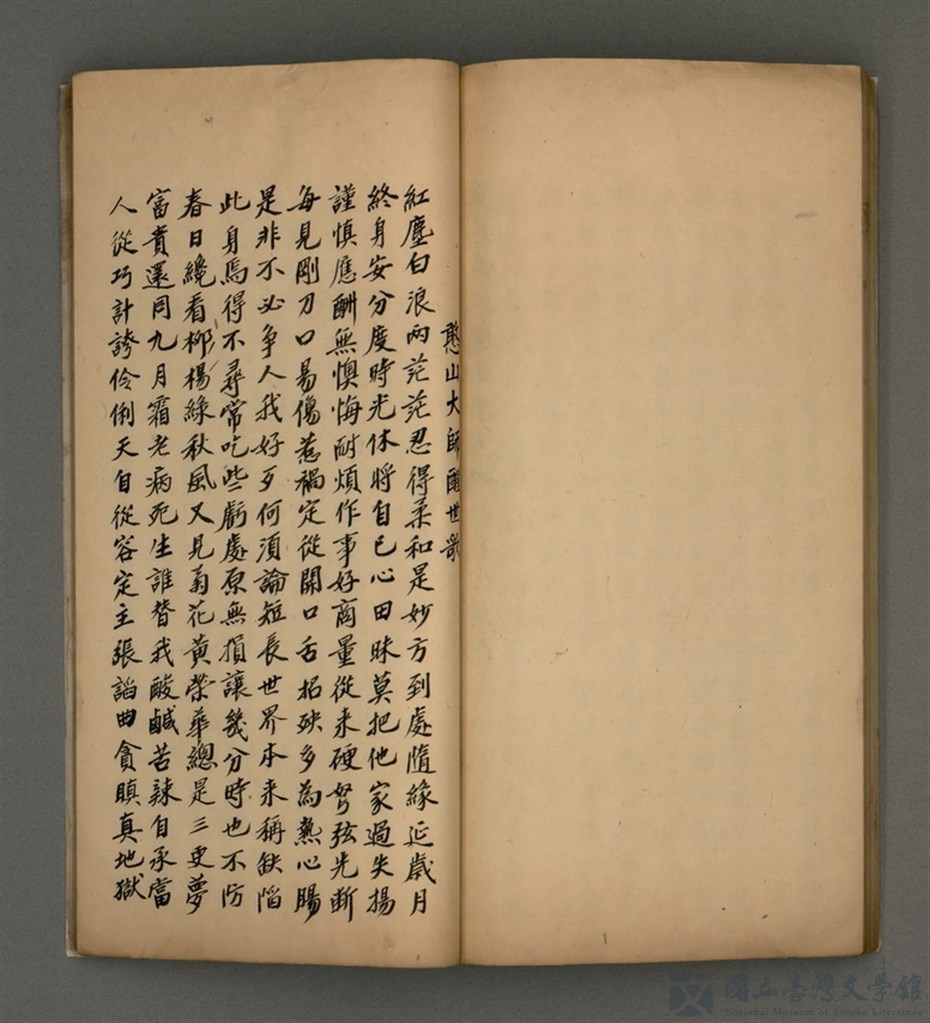 憨山大師醒世歌
紅塵白浪兩茫茫忍得柔和是妙方到處隨緣延歲月
終身安分度時光休將自己心田昧莫把他家過失揚
謹慎應酬無懊悔耐煩作事好商量從来硬弩弦先斷
每見剛刀口易傷惹禍定從開口舌招殃多為熱心腸
是非不必争人我好歹何須論短長世界本来稱缺陷
此身焉得不尋常吃些虧處原無損讓幾分時也不防
春日纔看柳楊綠秋風又見菊花黃榮華總是三更夢
富貴還同九月霜老病死生誰替我酸鹹苦辣自承當
人從巧計誇伶俐天自從容定主張諂曲貪瞋真地獄
國立臺灣文學館
National Museum of Taiwan Literature